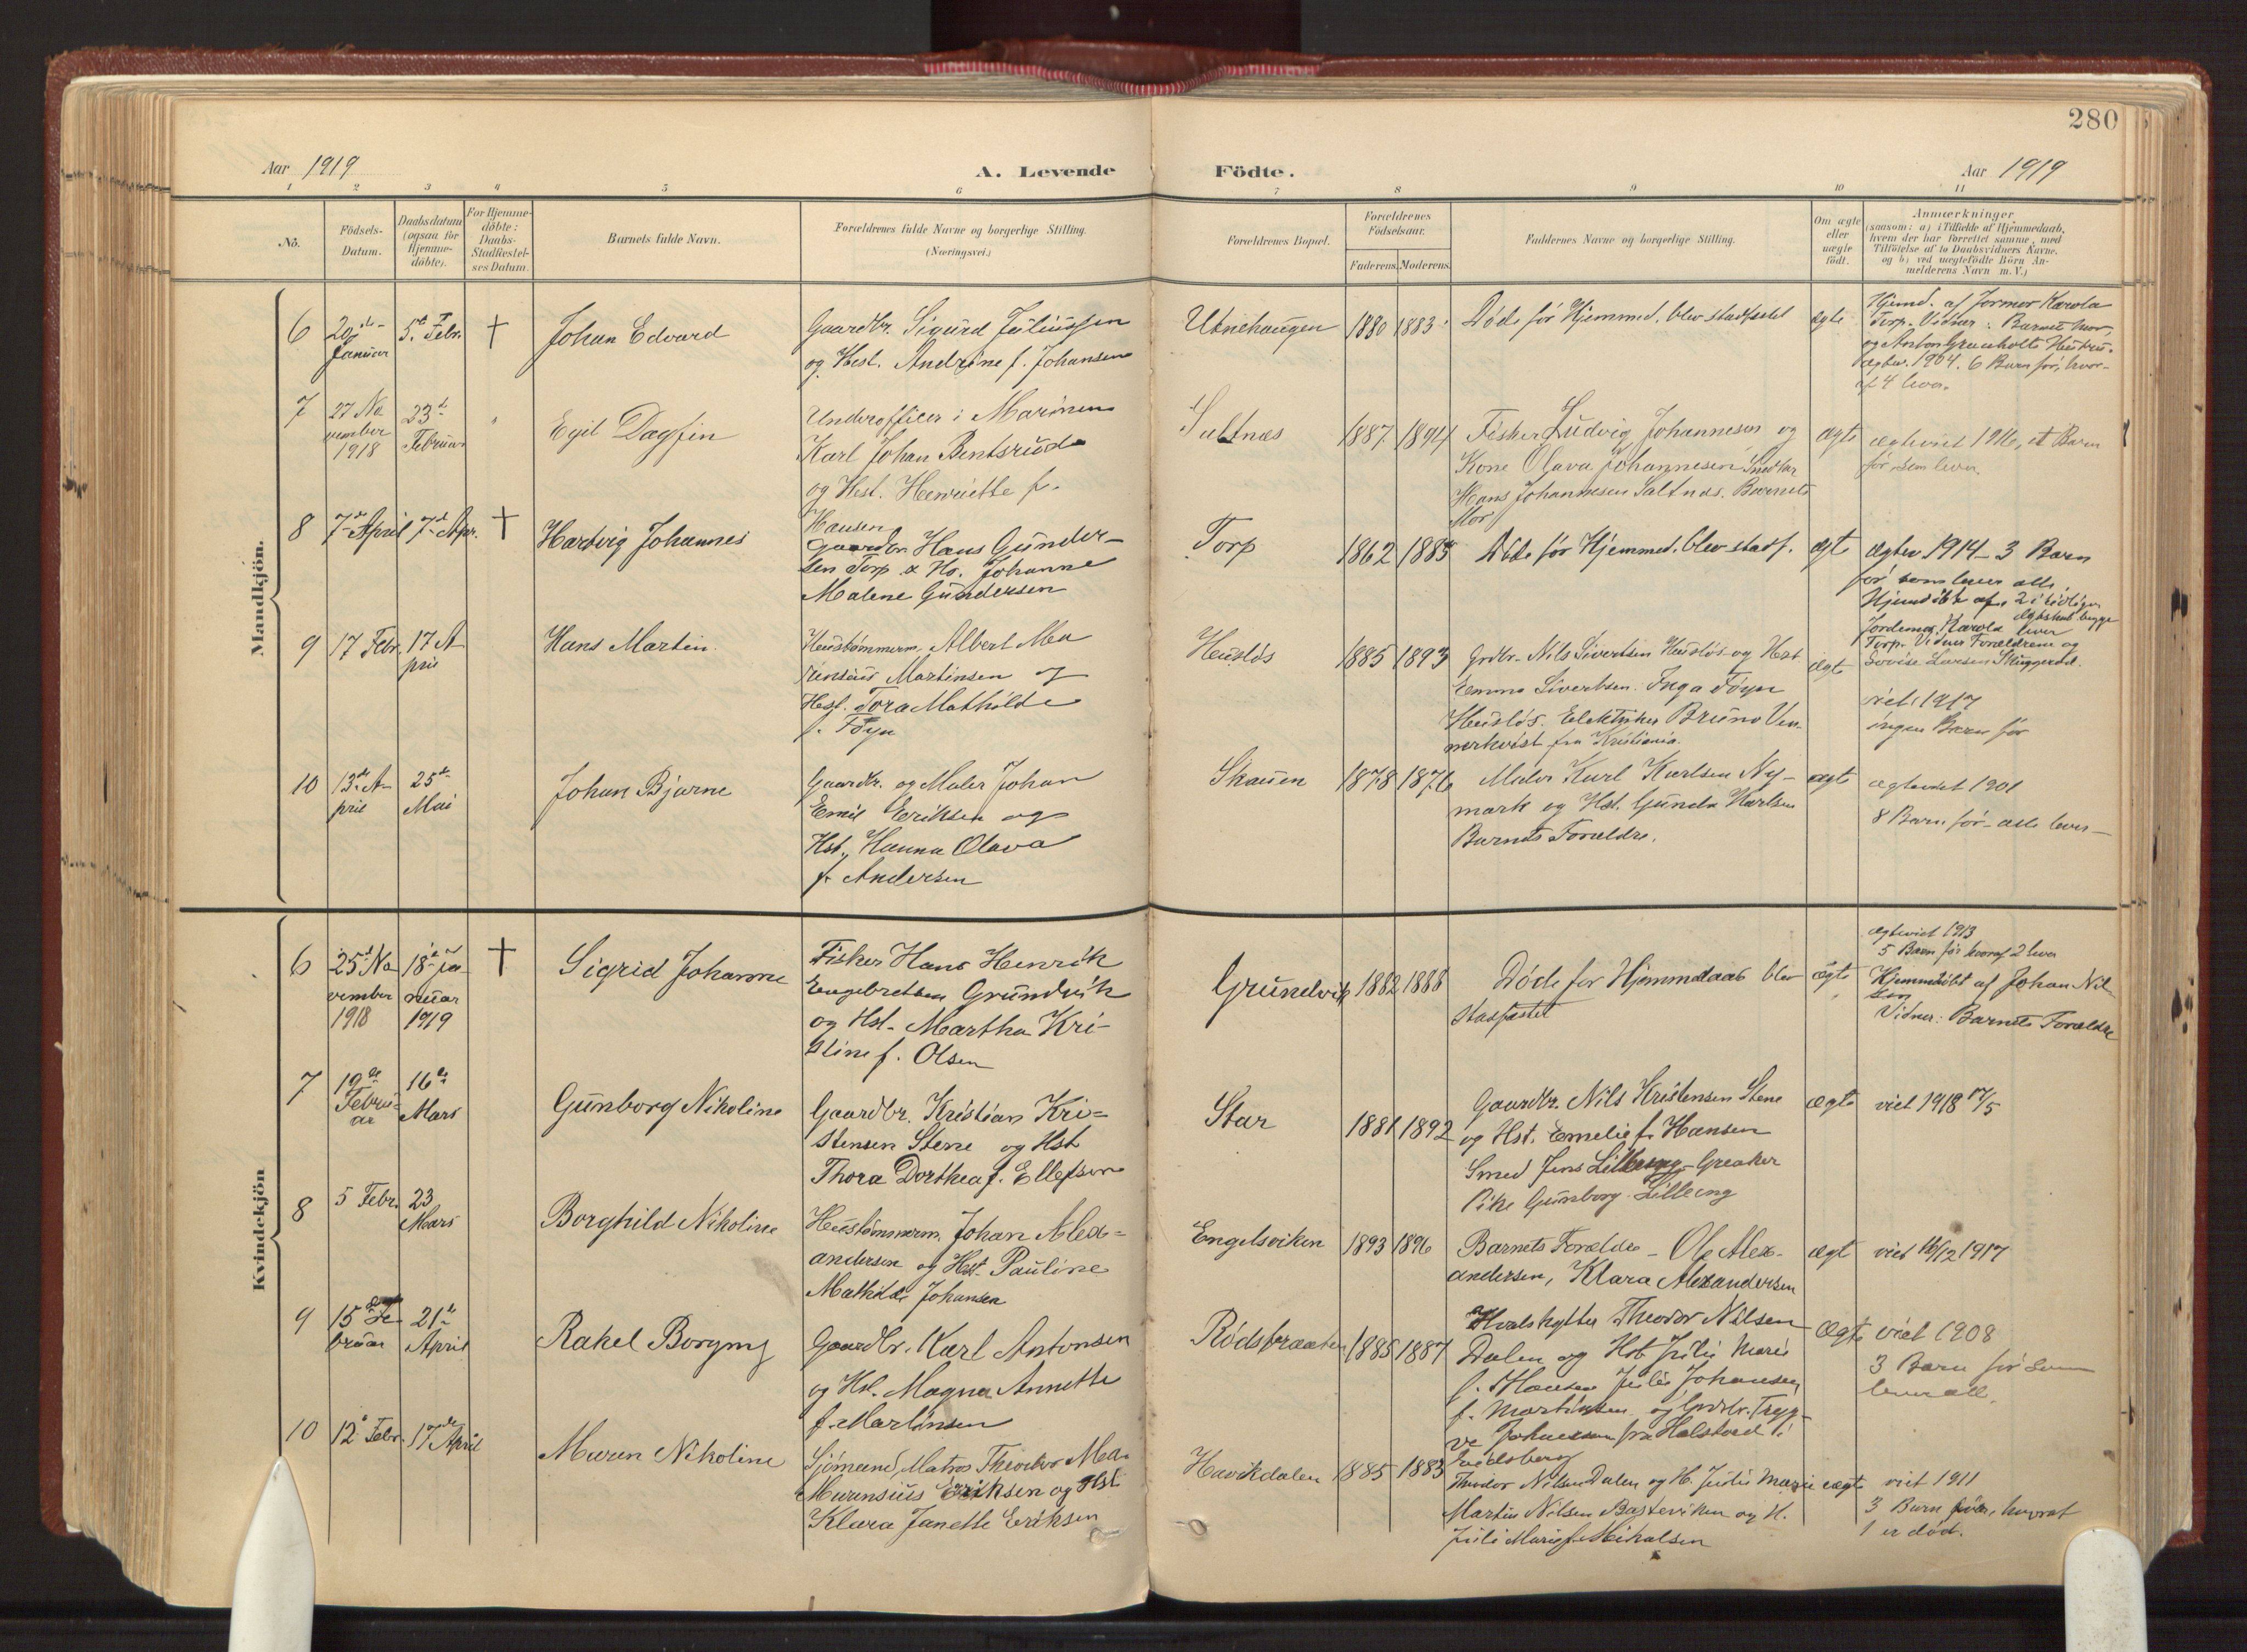 280
Aar 1919
A. Levende
Födte.
Aar 1919
1 2 3 4 5 6 7 8 9 10 11
No.
Födsels-
Datum.
Daabsdatum
(ogsaa for
Hjemme-
döbte).
For Hjemme-
döbte:
Daabs-
Stadfæstel-
ses Datum.
Barnets fulde Navn.
Forældrenes fulde Navne og borgerlige Stilling.
(Næringsvei.)
Forældrenes Bopæl.
Forældrenes
Födselsaar.
Faderens. Moderens.
Faddernes Navne og borgerlige Stilling.
Om ægte
eller
uægte
födt.
Anmærkninger
(saasom: a) i Tilfælde af Hjemmedaab,
hvem der har forrettet samme, med
Tilföielse af to Daabsvidners Navne,
og b) ved uægtefödte Börn An-
melderens Navn m. V.)
Mandkjön.
6
20de
Januar
5te Febr.
†
Johan Edvard
Gaardbr. Sigurd Juliussen
og Hust. Andrine f. Johansen
Utnehaugen
1880 1883
Døde før Hjemmed. blev stadfestet
ægte
Hjemd. af Jormor Karola
Torp. Vidner: Barnets Mor,
og Anton Hustru.
1904. 6 Barn før, hvor-
af 4 lever.
7
27 No
vember
1918
23de
Februar
Egil Dagfin
Underofficer i Marinen
Karl Johan Bentsrud
og Hust. Henriette f.
Hansen
Saltnæs
1887 1894
Fisker Ludvig Johannesen og
Kone Olava Johannesen Snedker
Hans Johannesen Saltnæs. Barnets
Mor
ægte
ægteviet 1916, et Barn
før som lever
8
7de April
7de Apr.
†
Hartvig Johannes
Gaardbr. Hans Gunder-
sen Torp & Ho. Johanne
Malene Gundersen
Torp
1862 1885
Døde før Hjemmed. blev stadf.
ægte
ægtev 1914 - 3 Barn
før som lever alle.
Hjemdøbt af 2 i tidligere
Jordemor Karola
lever
Torp. Vidner Forældrene og
Lovise Larsen Skuggerud.
9
17 Febr.
17 A
pril
Hans Martin.
Hustømmerm. Albert Ma
rensius Martinsen og
Hust. Tora Mathilde
f. Føyn
Husløs
1885 1893
Grdbr. Nils Sivertsen Husløs og Hust
Emma Sivertsen. Inga Føyn
Husløs. Elektriker Bruno Ven
nerkvist fra Kristiania.
ægte
viet 1917
ingen Barn før
10
13de A-
pril
25de
Mai
Johan Bjarne
Gaardbr. og Maler Johan
Emil Eriksen og
Hst. Hanna Olava
f. Andersen
Skauen
1878 1876
Maler Karl Karlsen Ny-
mark og Hst. Gunda Karlsen
Barnets Forældre.
ægte
ægteviet 1901
8 Barn før - alle lever -
Kvindekjön
6
25de No
vember
1918
18de ja-
nuar
1919
†
Sigrid Johanne
Fisker Hans Henrik
Engebretsen Grundvik
og Hst. Martha Kri-
stine f. Olsen
Grundvik
1882 1888
Døde før Hjemmdaab blev
stadfæstet
ægte
ægteviet 1913
5 Barn før hvoraf 2 lever
Hjemmedøbt af Johan Nil-
sen
Vidner: Barnets Forældre
7
19de
Febru-
ar
16de
Mars
Gunborg Nikoline
Gaardbr. Kristian Kri-
stensen Stene og Hst
Thora Dorthea f. Ellefsen
Star
1881 1892
Gaardbr. Nils Kristensen Stene
og Hst. Emelie f. Hansen
Smed Jens Lilleeng - Greaker
Pike Gunborg Lilleeng
ægte
viet 1918 17/5
8
5 Febr.
23
Mars
Borghild Nikoline
Hustømmerm. Johan Alex-
andersen og Hst. Pauline
Mathilde Johansen
Engelsviken
1893 1896
Barnets Forældre - Ole Alex-
andersen, Klara Alexandersen
ægte
viet 16/12 1917
9
15de Fe
bruar
21de
April
Rakel Borgny
Gaardbr. Karl Antonsen
og Hst. Magna Annette
f. Martinsen
Rødsbraaten
1885 1887
Hvalskytter Theodor Nilsen
Dalen og Hst Julie Marie
f. Hansen Julie Johansen
f. Martinsen og Grdbr. Tryg-
ve Johansen fra Halstord i
Tuidsberg
ægte
viet 1908
3 Barn før som
lever alle
10
12 Febr.
17de April
Maren Nikoline
Sjømand, Matros Theodor Ma-
Marensius Eriksen og Hst
Klara Janette Eriksen
Havikdalen
1885 1883
Theodor Nilsen Dalen og H. Julie Marie
Martin Nilsen Basteviken og H.
Julie Marie f. Mikalsen
ægte
viet 1911
3 Barn før, hvoraf
1 er død.